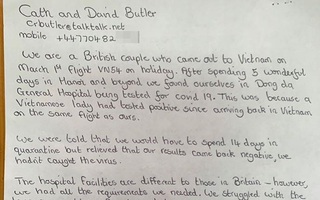 Cath and David Butler
crbutler@talktalk.net
mobile +44770482
We are a British couple who came out to Vietnam on
March 1st flight VN54 on holiday. After spending 5 wonderful
days in Hanoi and beyond we found ourselves in Dong da
General Hospital being tested for covid 19. This was because a
Vietnamese lady had tested positive since arriving back in Vietnam
on the same flight as ours.
We were told that we would have to spend 14 days in
quarantine but relieved that our results came back negative, we
hadn't caught the virus.
The hospital facilities are different to those in Britain - however,
we had all the requirements we needed. We struggled with the